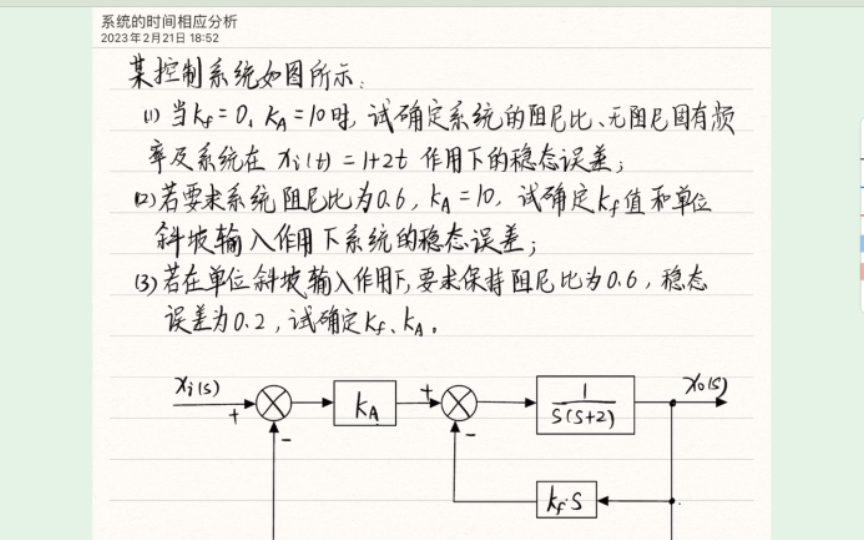 系统的时间相应分析
2023年2月21日 18:52
某控制系统如图所示:
(1) 当kf=0、kA=10时,试确定系统的阻尼比、无阻尼固有频
率及系统在 xi(t)=1+2t 作用下的稳态误差;
(2)若要求系统阻尼比为0.6,kA=10,试确定kf值和单位
斜坡输入作用下系统的稳态误差;
(3)若在单位斜坡输入作用下,要求保持阻尼比为0.6,稳态
误差为0.2,试确定kf、kA。
Xi(s)
+
-
kA
+
-
1
S(S+2)
X0(S)
kf·S